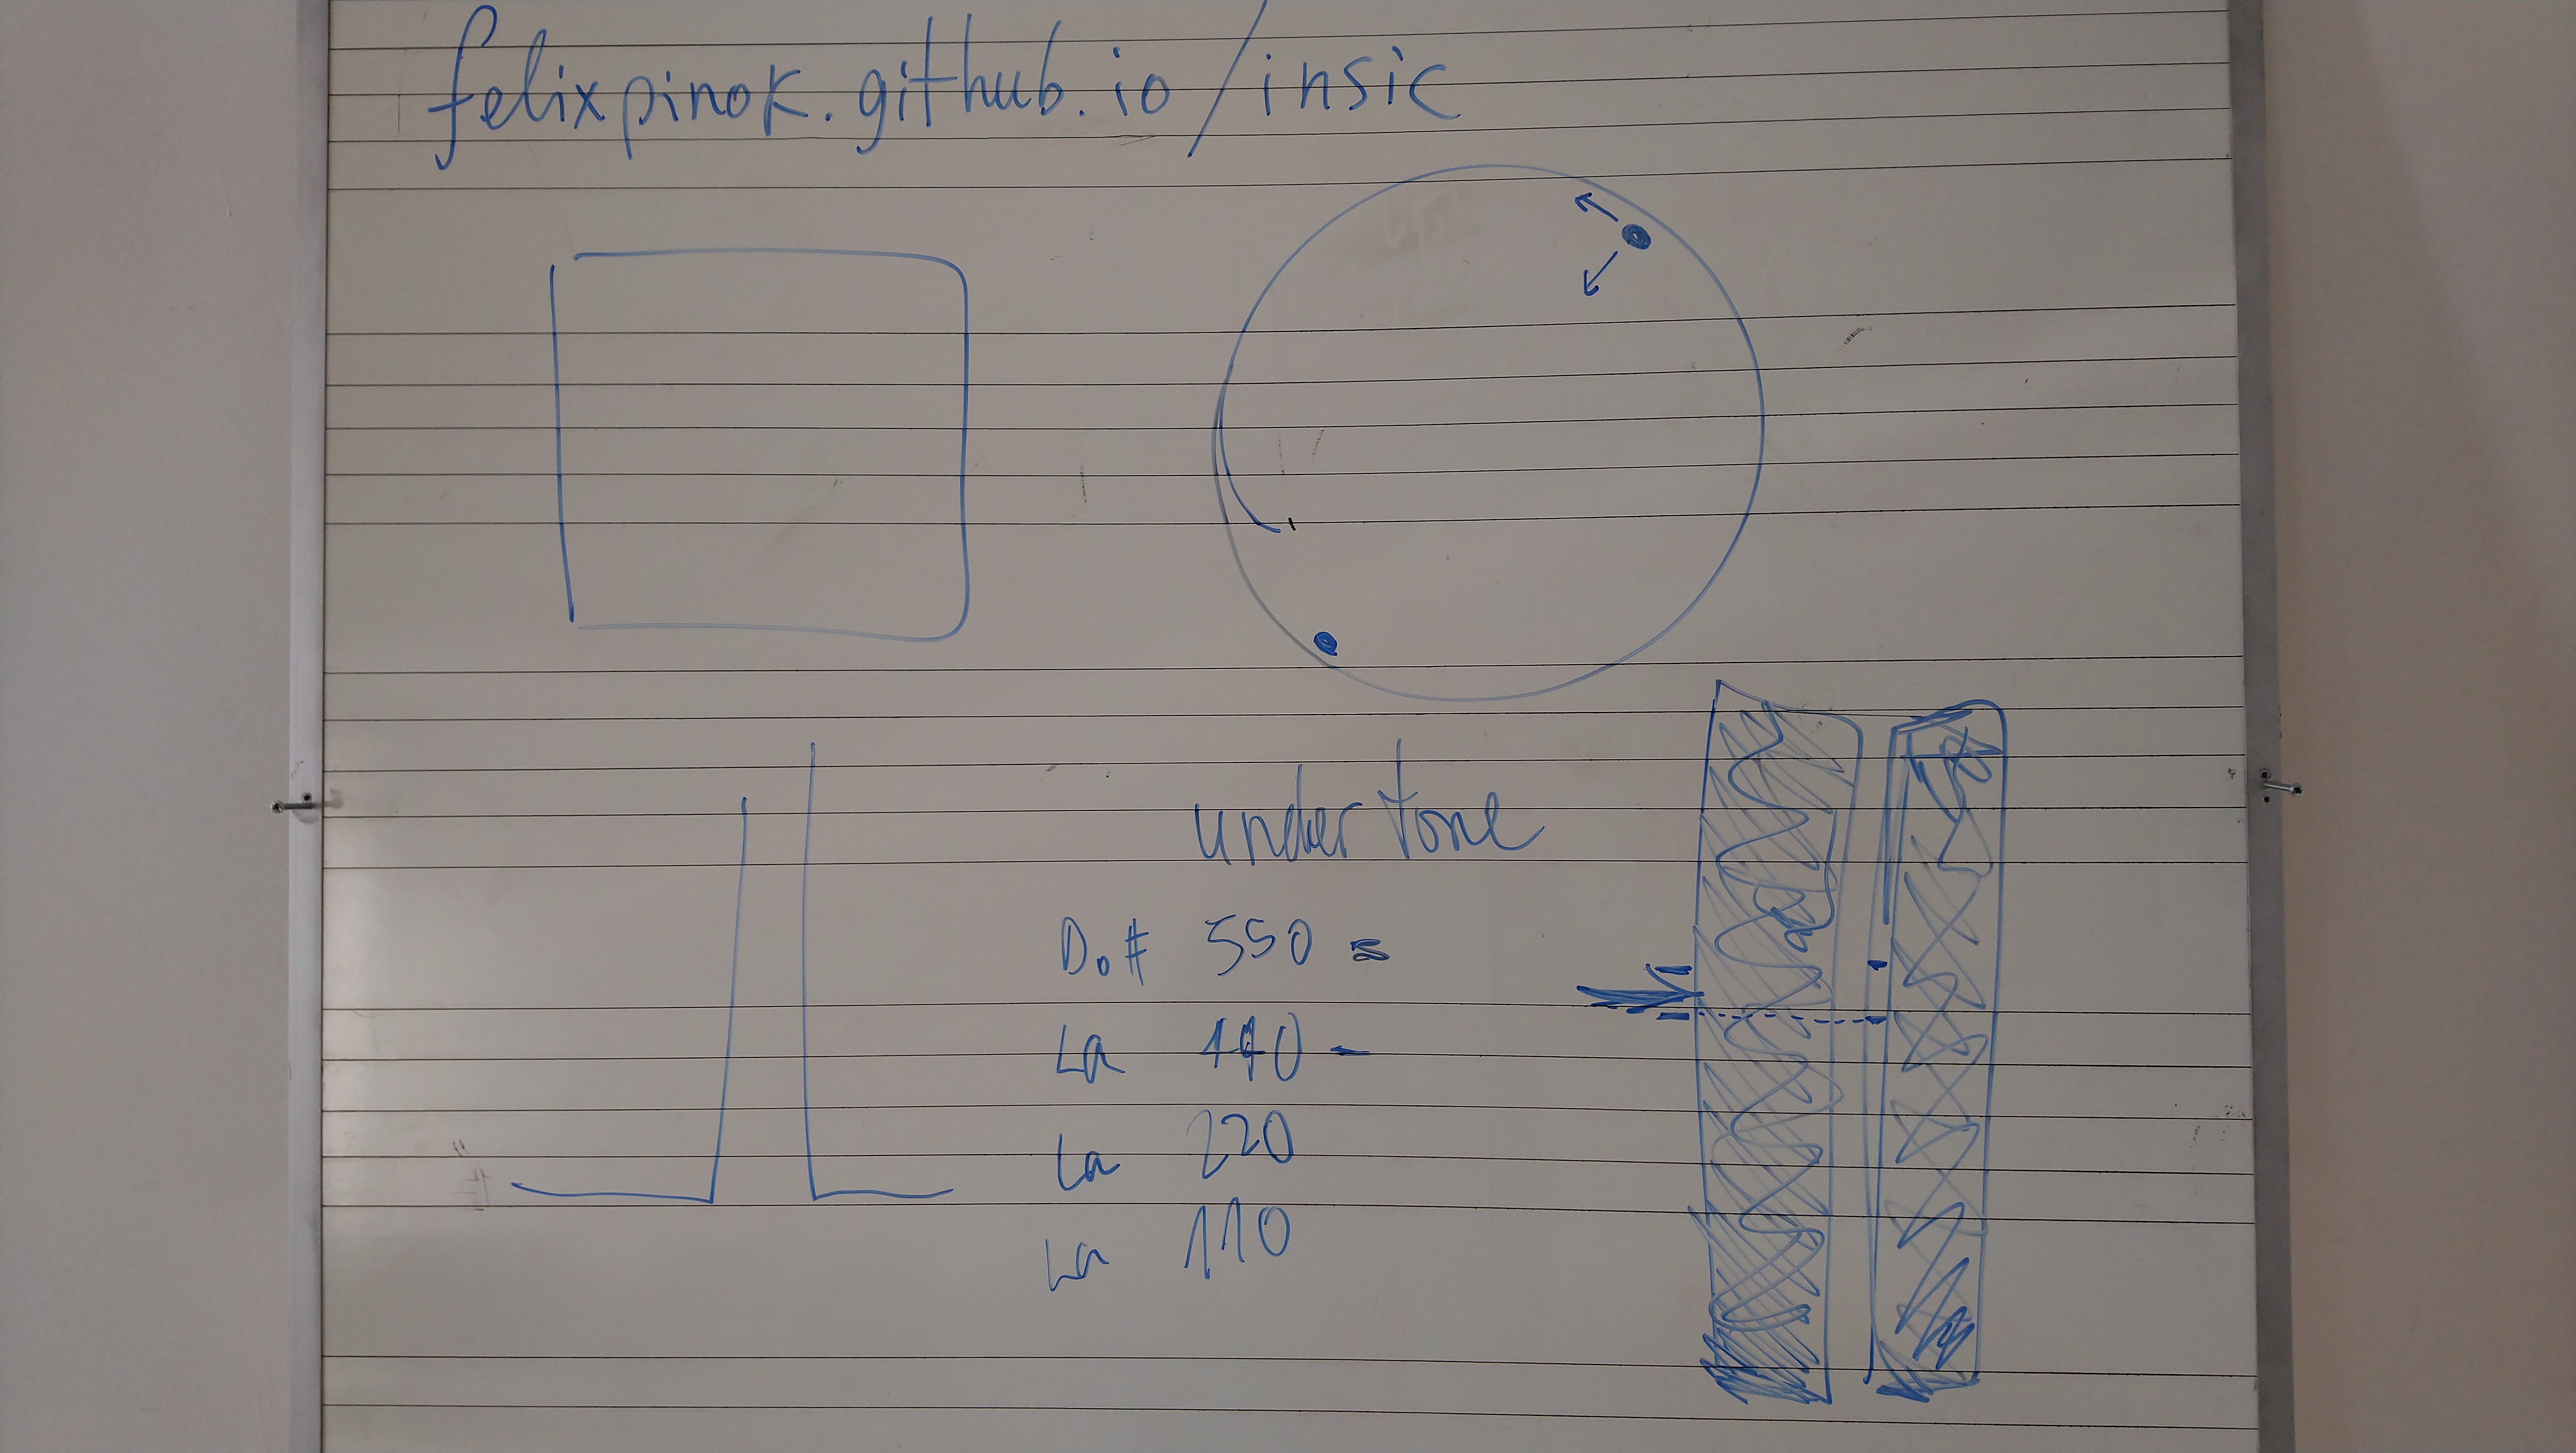 felixpinok.github.io/insic
undertone
Do# 550 =
La 440 -
La 220
La 110